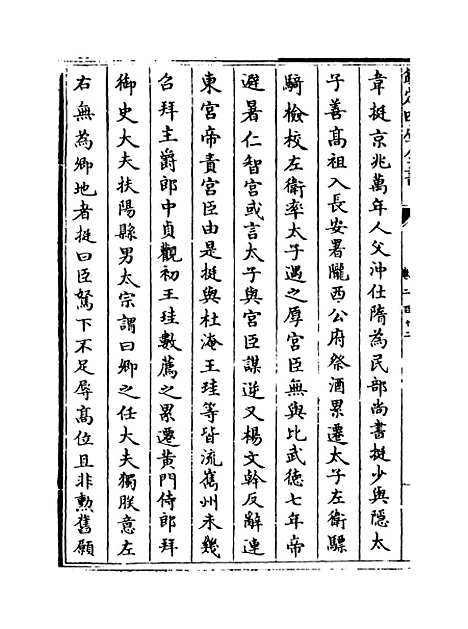 欽定四庫全書
卷二百十二
韋挺京兆萬年人父沖仕隋為民部尚書挺少與隱太
子善髙祖入長安署隴西公府祭酒累遷太子左衛驃
騎檢校左衛率太子遇之厚宫臣無與比武徳七年帝
避暑仁智宫或言太子與宫臣謀逆又楊文幹反辭連
東宫帝責宫臣由是挺與杜淹王珪等皆流嶲州未幾
召拜主爵郎中貞觀初王珪數薦之累遷黄門侍郎拜
御史大夫扶陽縣男太宗謂曰卿之任大夫獨朕意左
右無為卿地者挺曰臣駑下不足辱髙位且非勲舊願